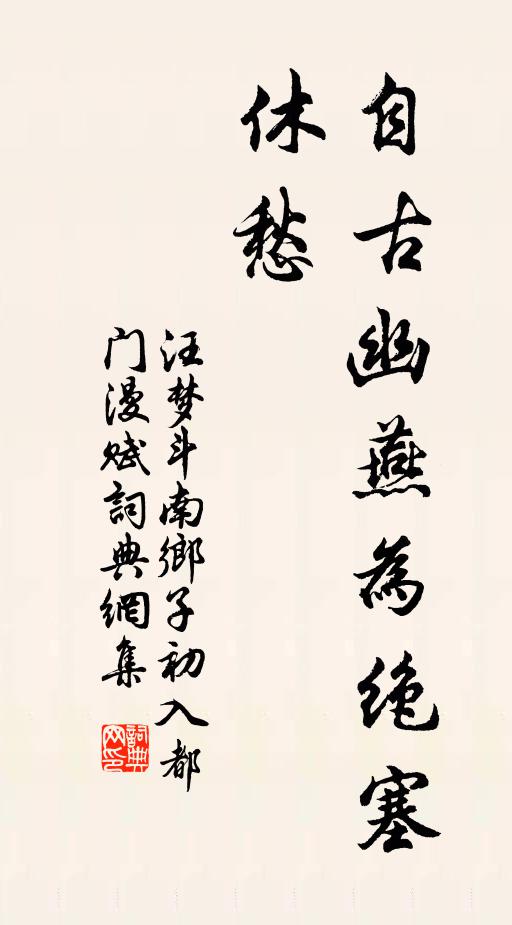 自古幽燕為绝塞
休愁
汪梦斗南鄉子初入都
门漫赋詞典網集
詞典
网印